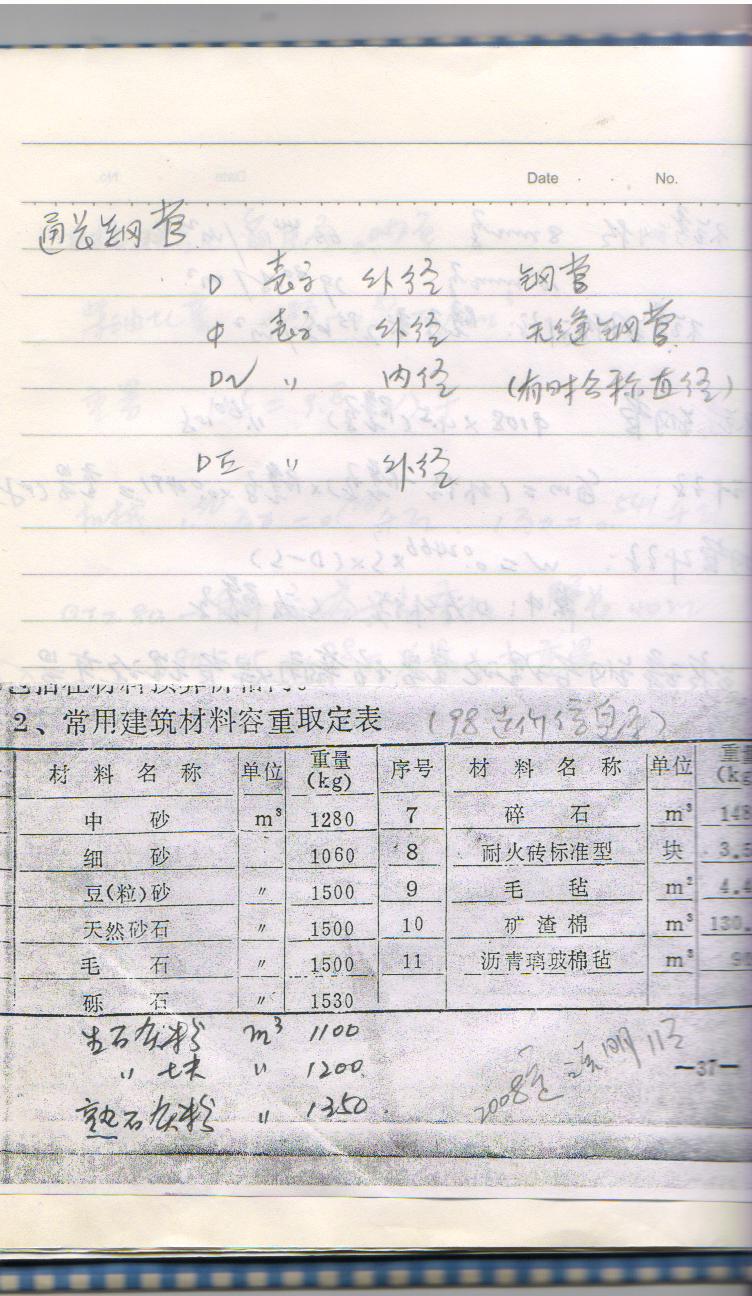 Date No.
通长钢管
D 表示 外径 钢管
Φ 表示 外径 无缝钢管
DN 〃 内径 (有时公称直径)
DE 〃 外径
2、常用建筑材料容重取定表 (98造价信息
材料名称 单位 重量(kg) 序号 材料名称 单位 重量
中砂 m³ 1280 7 碎石 m³ 148
细砂 1060 8 耐火砖标准型 块 3.5
豆(粒)砂 〃 1500 9 毛毡 m² 4.4
天然砂石 〃 1500 10 矿渣棉 m³ 130.
毛石 〃 1500 11 沥青璃玻棉毡 m³
砾石 〃 1530
生石灰粉 m³ 1100
〃 块 〃 1200
熟石灰粉 〃 1350
2008 说明
—37—